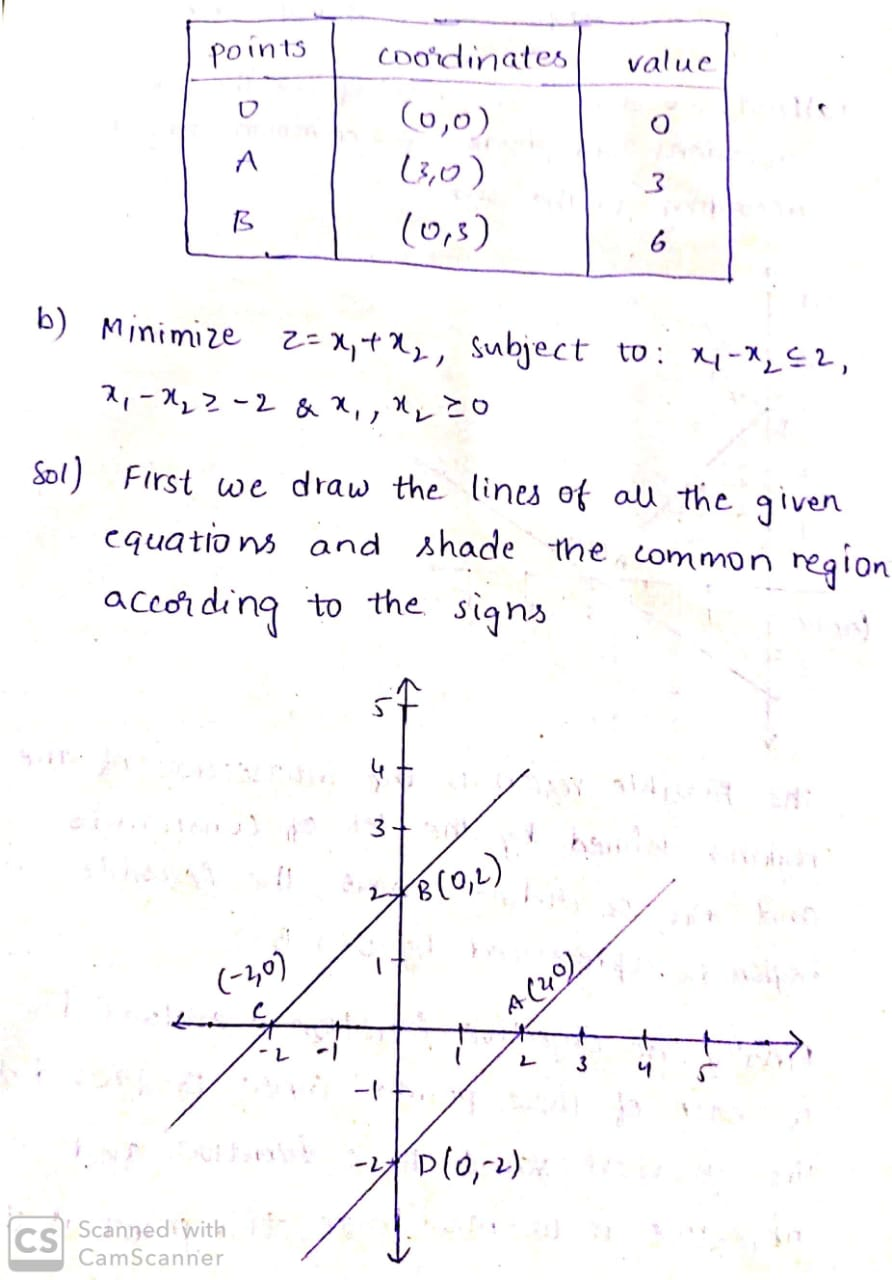 points coordinates value
O (0,0) 0
A (3,0) 3
B (0,3) 6
b) Minimize z=x₁+x₂, subject to: x₁-x₂≤2,
x₁-x₂≥-2 & x₁, x₂≥0
Sol) First we draw the lines of all the given
equations and shade the common region
according to the signs
5
4
3
2 B(0,2)
(-2,0) 1 A(2,0)
C
-2 -1 1 2 3 4 5
-1
-2 D(0,-2)
CS Scanned with
CamScanner